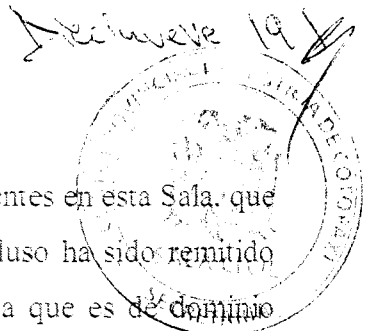 Diecinueve 19
entes en esta Sala, que
luso ha sido remitido
a que es de dominio